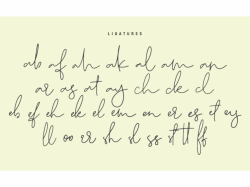 LIGATURES
ab af ah ak al am an
ar as at ay ch ck cl
eb ef eh ek el em en er es et ey
ll oo er sh sl ss st tt ff